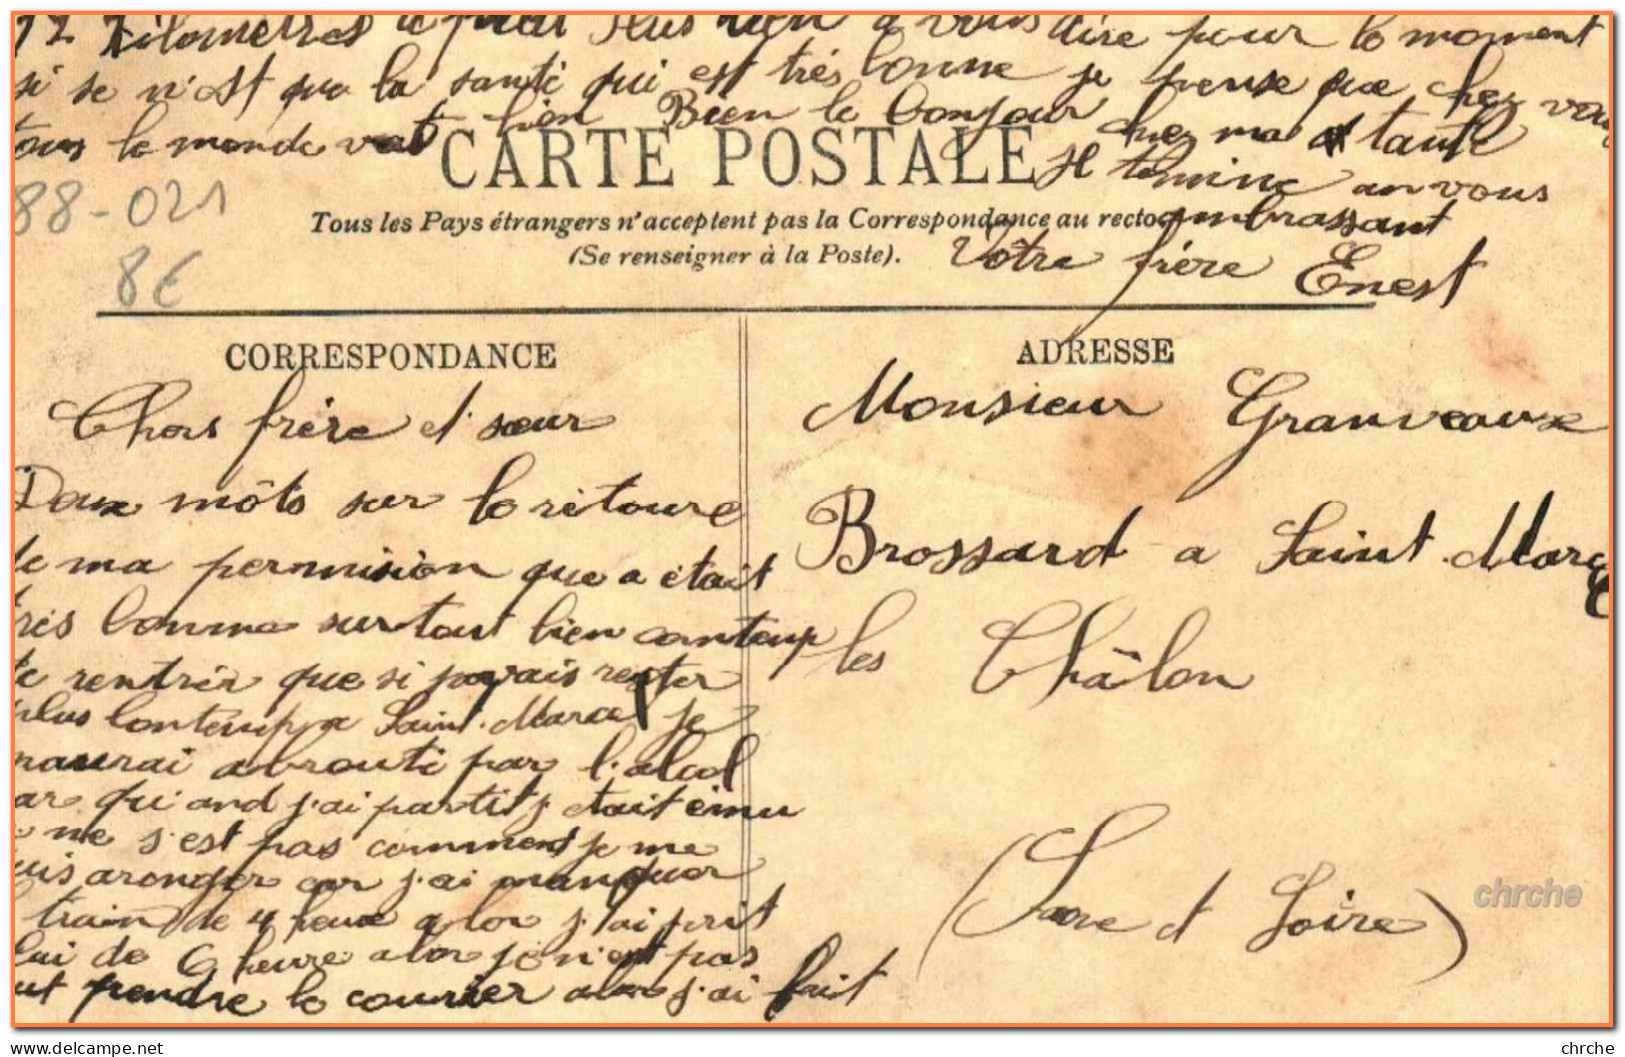 12 Kilometres a pied Plus rien a vous dire pour le moment
si se n'est que la santé qui est trés bonne je pense que chez vous
tous le monde vat bien Bien le bonjour chez ma tante
CARTE POSTALE
Je termine an vous
88-021
Tous les Pays étrangers n'acceptent pas la Correspondance au recto
ambrassant
(Se renseigner à la Poste).
Vôtre frère Enest
8€
CORRESPONDANCE
Chers frère et sœur
Deux môts sur le retoure
de ma permision que a était
trés bonne surtout bien contenp
de rentrér que si javais rester
plus lontemp a Saint. Marcel je
maurai abrouti par l'alcol
car qu'and j'ai partit j etait ému
je me s'est pas comment je me
suis aronger car j'ai manquer
train de 4 heure alor j'ai prit
lui de 9 heure alor je n'est pas
put prendre le courier alor j'ai fait
ADRESSE
Monsieur Granveaux
Brossard a Saint. Marcel
les Châlon
(Saone et Loire)
chrche
www.delcampe.net
chrche